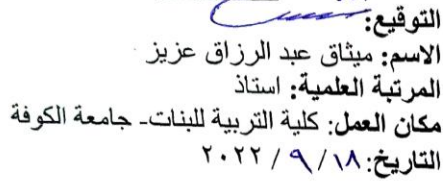 التوقيع:
الاسم: ميثاق عبد الرزاق عزيز
المرتبة العلمية: استاذ
مكان العمل: كلية التربية للبنات- جامعة الكوفة
التاريخ: ١٨/ ٩/ ٢٠٢٢